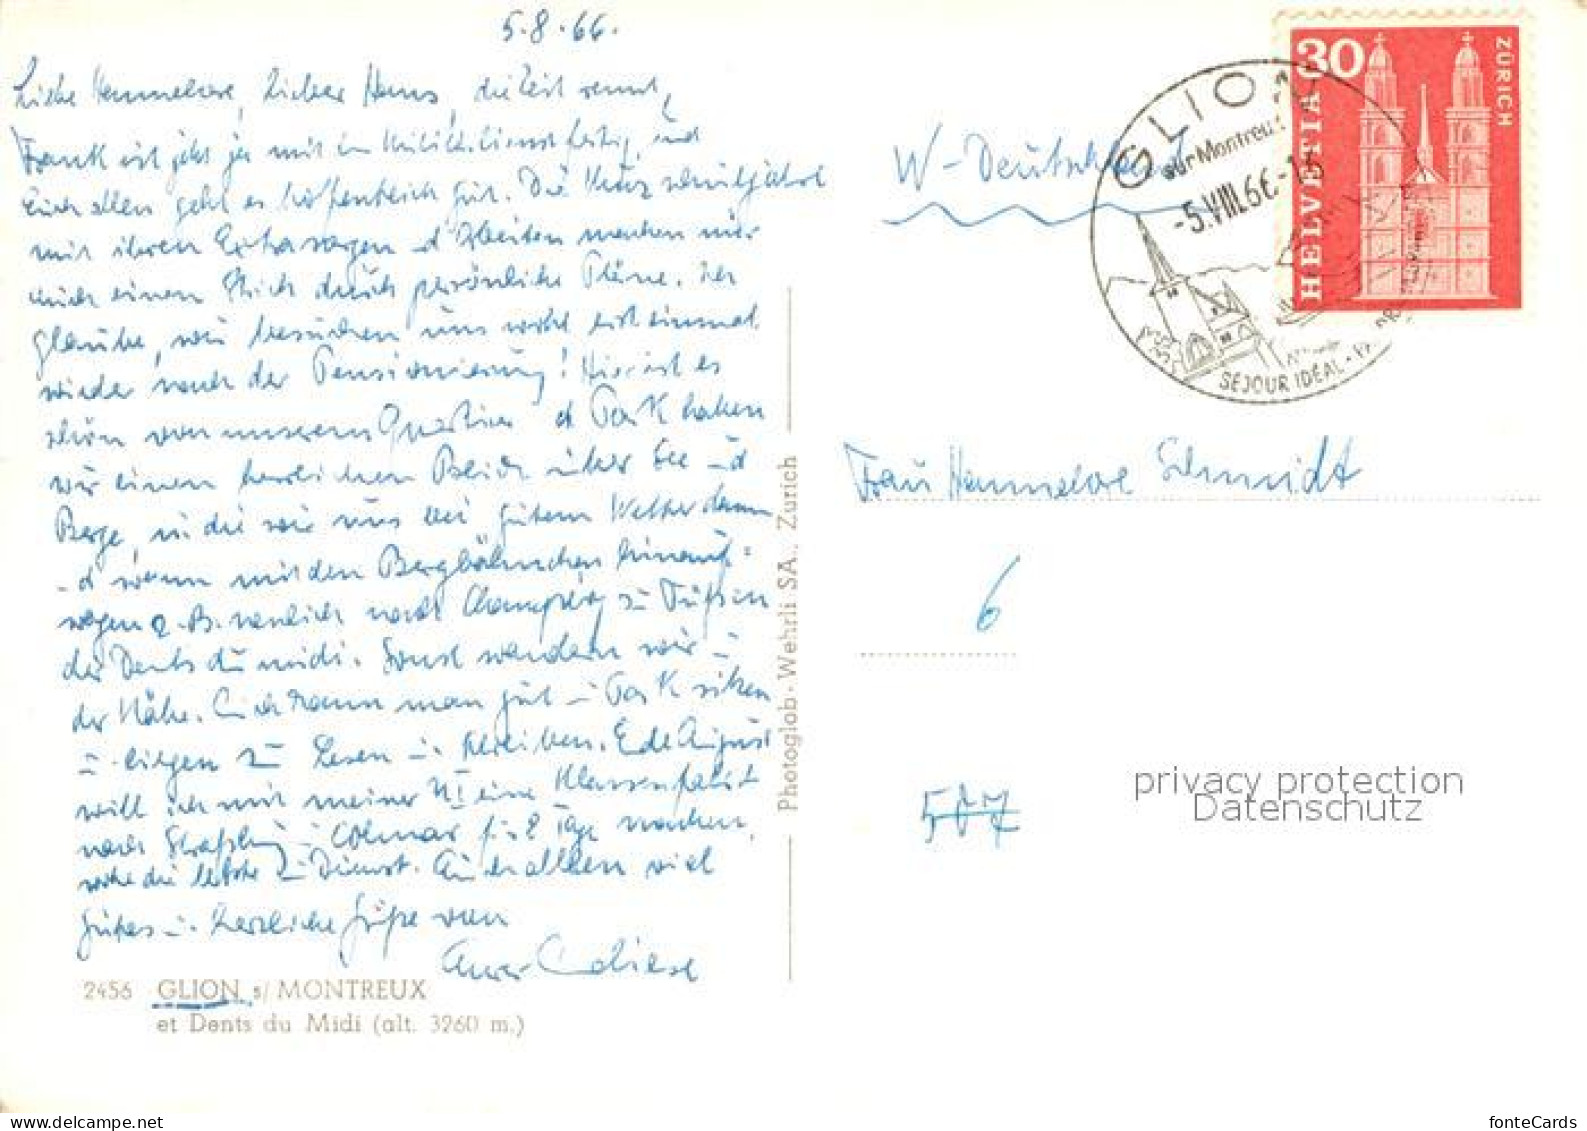 5.8.66.
Liebe Hannelore, lieber Hans, die Zeit rennt,
Frank ist jetzt ja mit dem Militärdienst fertig, und
Euch allen geht es hoffentlich gut. Die Kurzschuljahre
mit ihren Extrasorgen -d Arbeiten machen mir
auch einen Strich durch persönliche Pläne. Ich
glaube, wir besuchen uns wohl erst einmal
wieder nach der Pensionierung! Hier ist es
schön von unserem Quartier d Park haben
wir einen herrlichen Blick über See -d
Berge, in die wir uns bei gutem Wetter dann
-d wann mit den Bergbähnchen hinauf=
wagen z.B. neulich nach Champéry zu Füßen
der Dents du midi. Sonst wandern wir in
der Nähe. Auch kann man gut im Park sitzen
u. liegen zu Lesen u. Schreiben. Ende August
will ich mit meiner UI eine Klassenfahrt
nach Straßburg u. Colmar für 8 Tage machen,
die letzte im Dienst. Euch allen viel
Gutes u. herzliche Grüße von
Eurer
2456 GLION s/ MONTREUX
et Dents du Midi (alt. 3260 m.)
Photoglob-Wehrli SA., Zurich
W-Deutschland
GLION
sur Montreux
-5.VIII.66-
SÉJOUR IDÉAL
30
HELVETIA
ZÜRICH
Frau Hannelore Schmidt
6
507
privacy protection
Datenschutz
www.delcampe.net
fonteCards